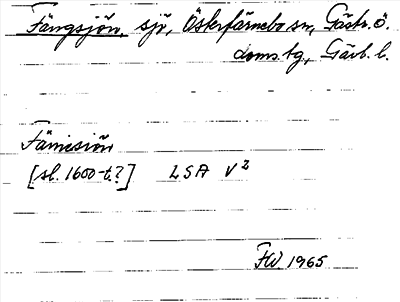 Fängsjön, sjö, Österfärnebo sn, Gästr. ö.
doms.tg, Gävb. l.
Fämisiön
[sl. 1600-t.?] LSA V2
FW. 1965